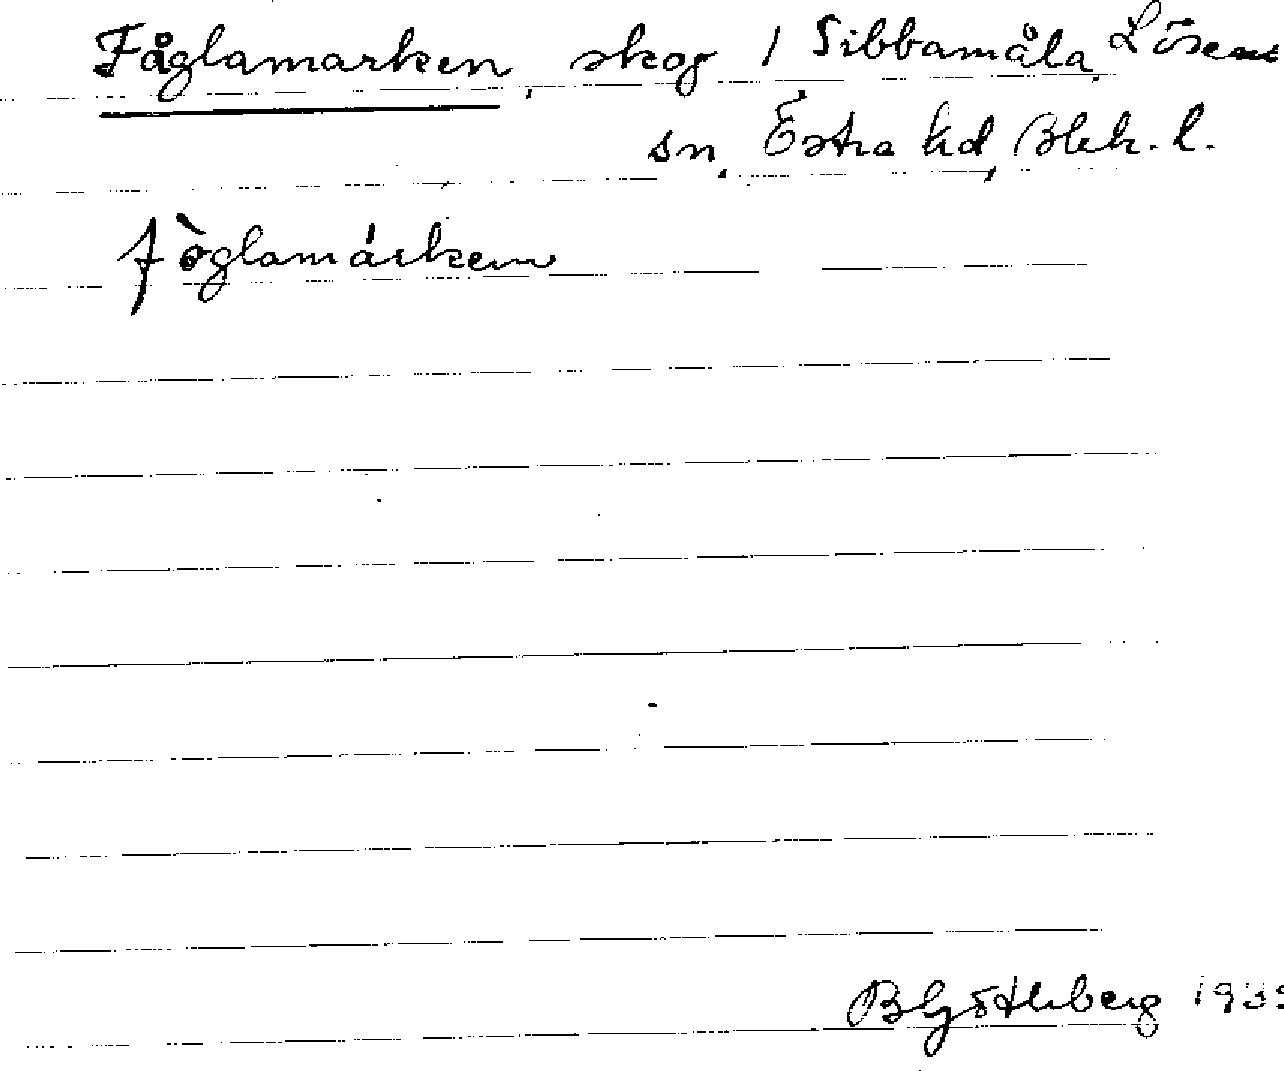 Fåglamarken, skog i Sibbamåla, Lösens
sn, Östra hd, Blek. l.
fòglamárken
B Göthberg